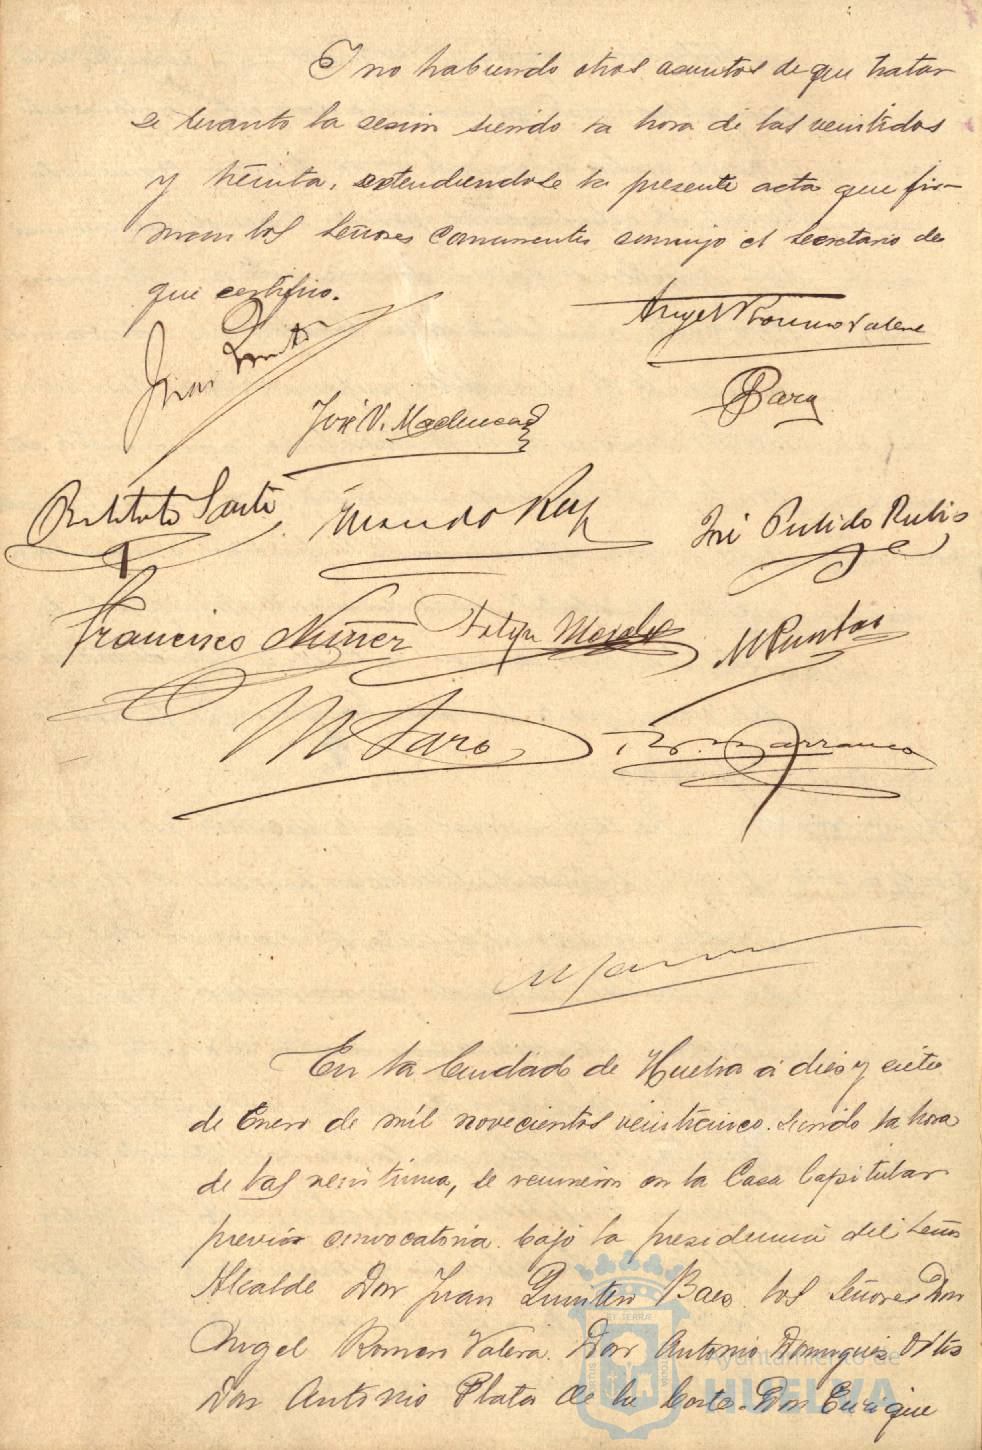 I no habiendo otros asuntos de que tratar
se levanto la sesion siendo la hora de las veintidos
y treinta, extendiendose la presente acta que fir-
man los señores concurrentes conmigo el secretario de
que certifico.
Juan Quintero
Angel Romero Valera
José V. Machuca
Garay
Restituto Santi
Ruiz
José Pulido Rubio
Francisco Núñez
Felipe Morales
M Puntas
M Saro
Barranco
En la Ciudad de Huelva a dies y siete
de Enero de mil novecientos veinticinco. siendo la hora
de las veintiuna, se reunieron en la Casa Capitular
previa convocatoria bajo la presidencia del Señor
Alcalde Don Juan Quintero Baez los Señores Don
Angel Romero Valera. Don Antonio Dominguez Ortis
Don Antonio Plata de la Corte. Don Enrique
Ayuntamiento de
HUELVA